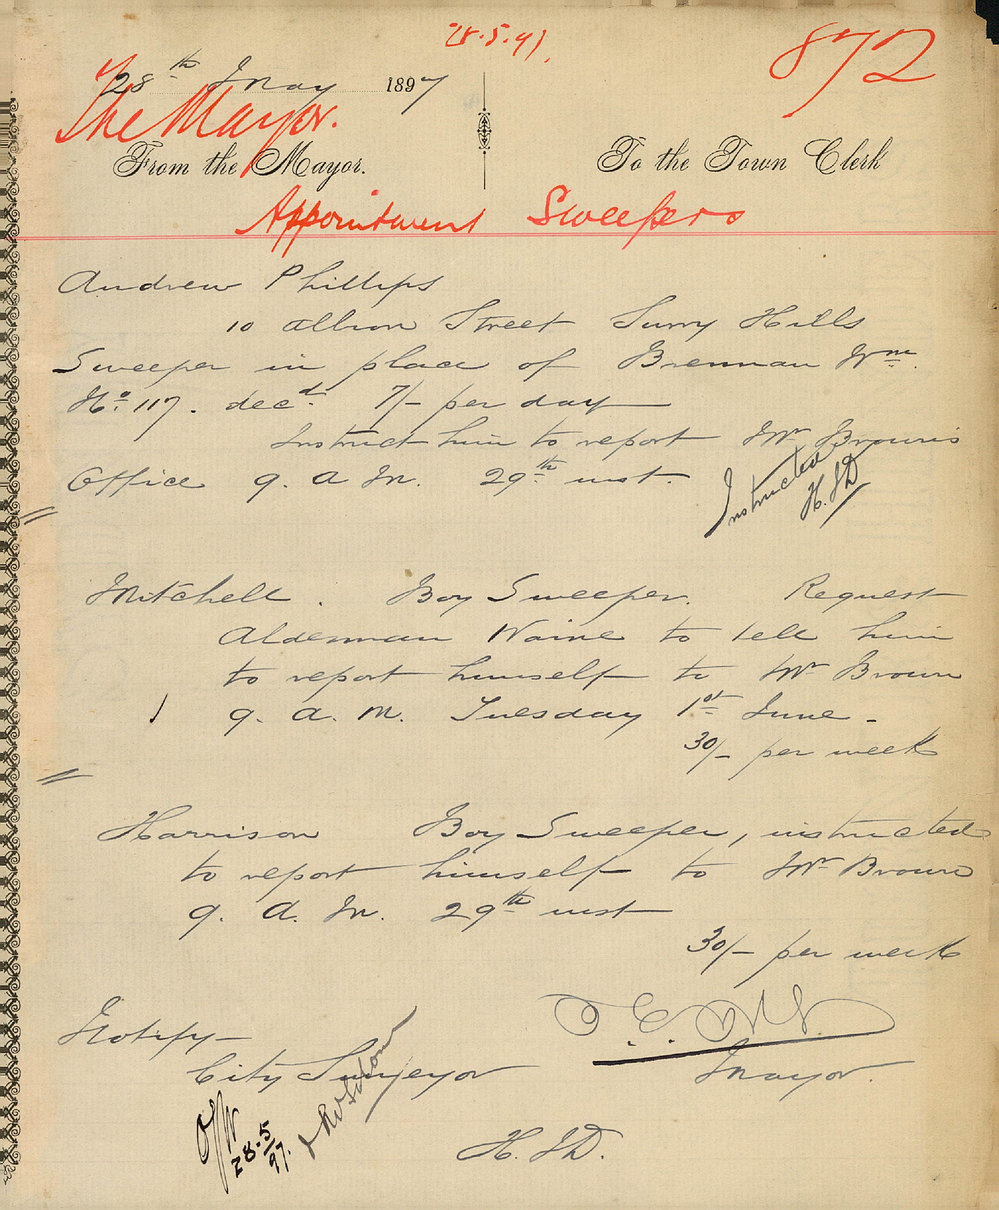 28.5.97.
872
28th May 1897
The Mayor.
From the Mayor. To the Town Clerk
Appointment Sweepers
Andrew Phillips
10 Albion Street Surry Hills
Sweeper in place of Brennan Wm.
No. 117. decd. 7/- per day
Instruct him to report Mr Brown's
Office 9. A M. 29th inst.
Instructed
H.JD
Mitchell. Boy Sweeper. Request
Alderman Waine to tell him
to report himself to Mr Brown
9. a. m. Tuesday 1st June -
30/- per week
Harrison Boy Sweeper, instructed
to report himself to Mr Brown
9. A. M. 29th inst
30/- per week
Notify
City Surveyor
Mayor.
28.5
97.
H. JD.